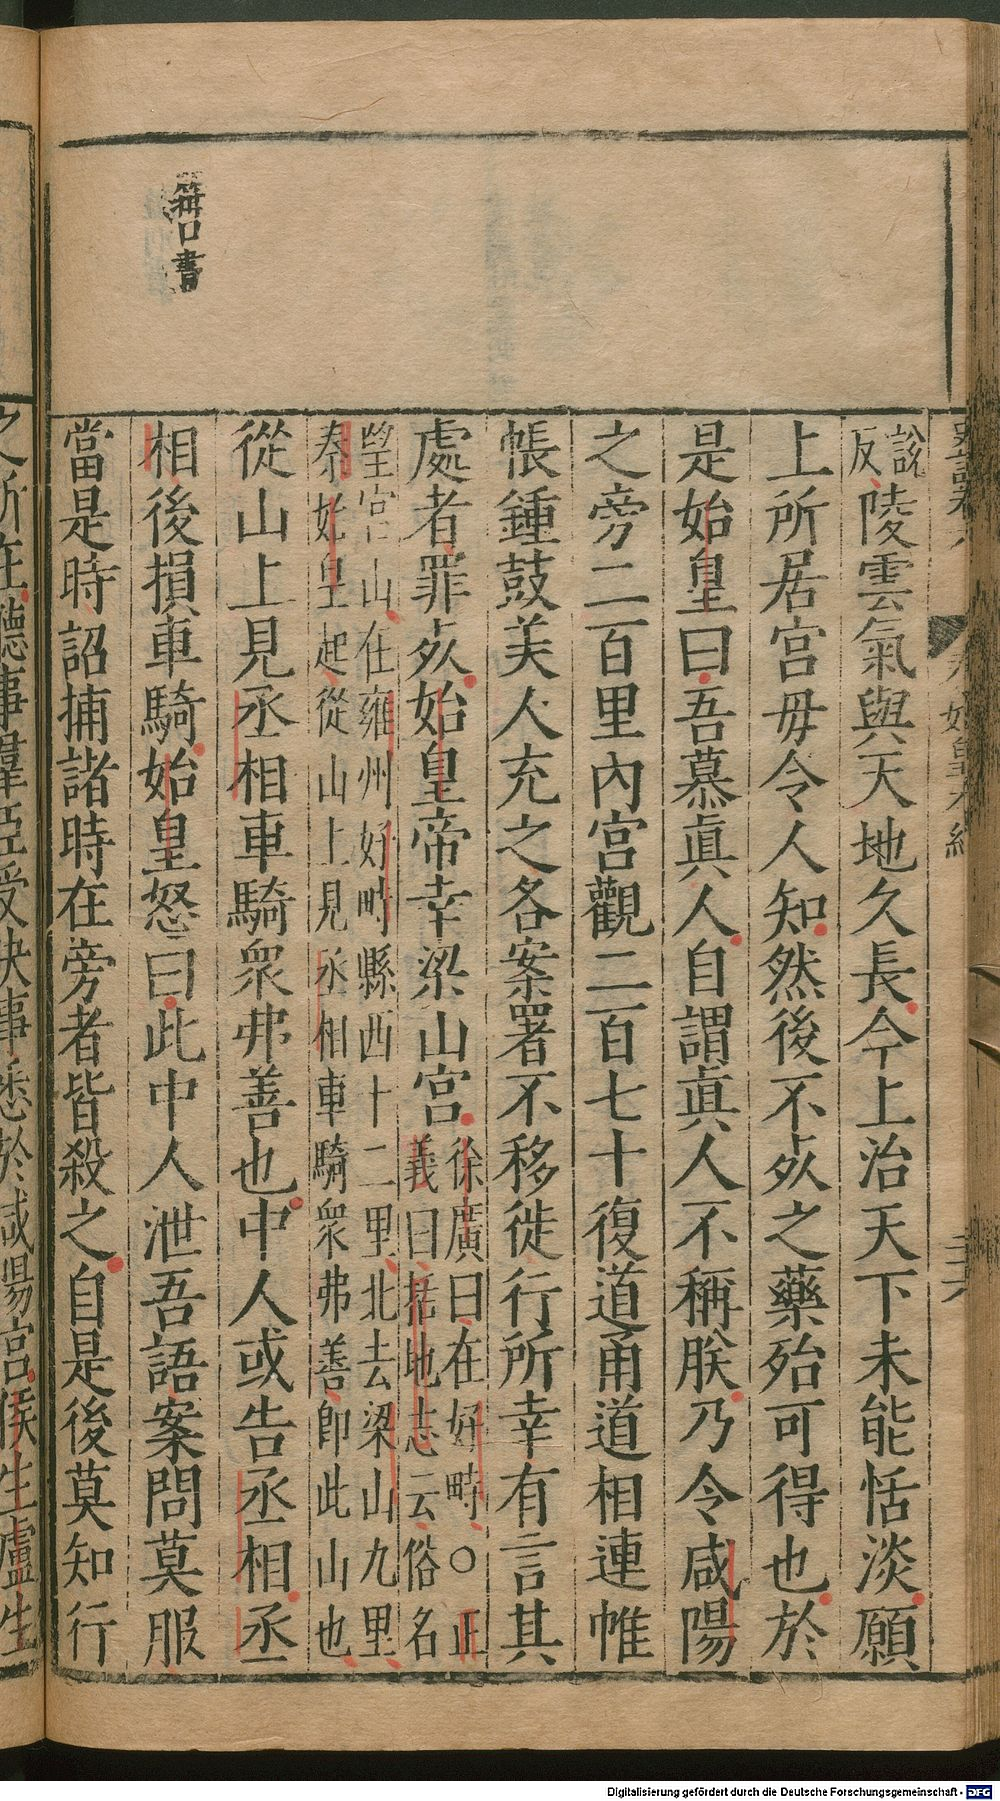 說
反陵雲氣與天地久長今上治天下未能恬淡願
上所居宮毋令人知然後不死之藥殆可得也於
是始皇曰吾慕眞人自謂眞人不稱朕乃令咸陽
之旁二百里內宮觀二百七十復道甬道相連帷
帳鍾鼓美人充之各案署不移徙行所幸有言其
處者罪死始皇帝幸梁山宮徐廣曰在好畤〇正
義曰括地志云俗名
望宮山在雍州好畤縣西十二里北去梁山九里
秦始皇起從山上見丞相車騎衆弗善卽此山也
從山上見丞相車騎衆弗善也中人或告丞相丞
相後損車騎始皇怒曰此中人泄吾語案問莫服
當是時詔捕諸時在旁者皆殺之自是後莫知行
之所在聽事羣臣受決事悉於咸陽宮侯生盧生
Digitalisierung gefördert durch die Deutsche Forschungsgemeinschaft - DFG